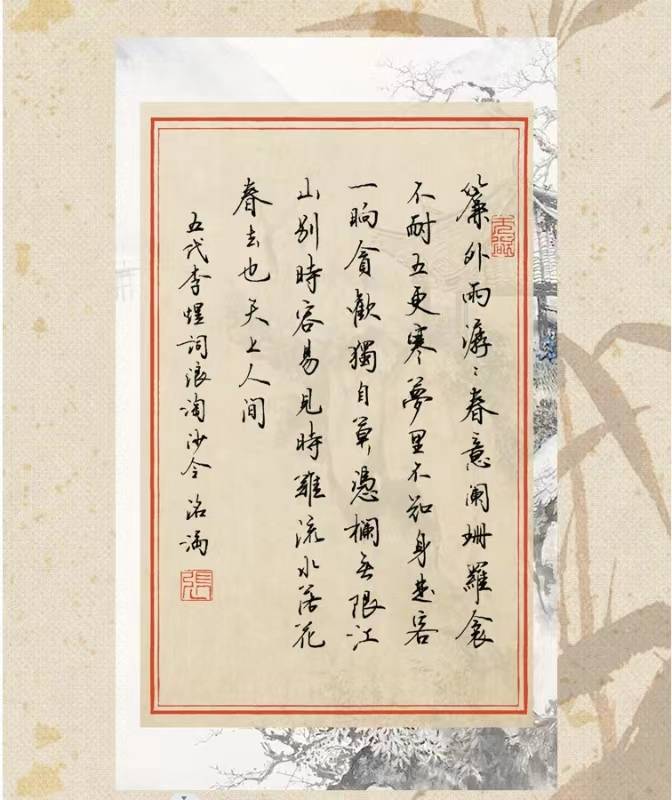 簾外雨潺々春意阑珊羅衾
不耐五更寒夢里不知身是客
一晌貪歡獨自莫憑欄无限江
山别時容易見時難流水落花
春去也天上人间
五代李煜词浪淘沙令
張